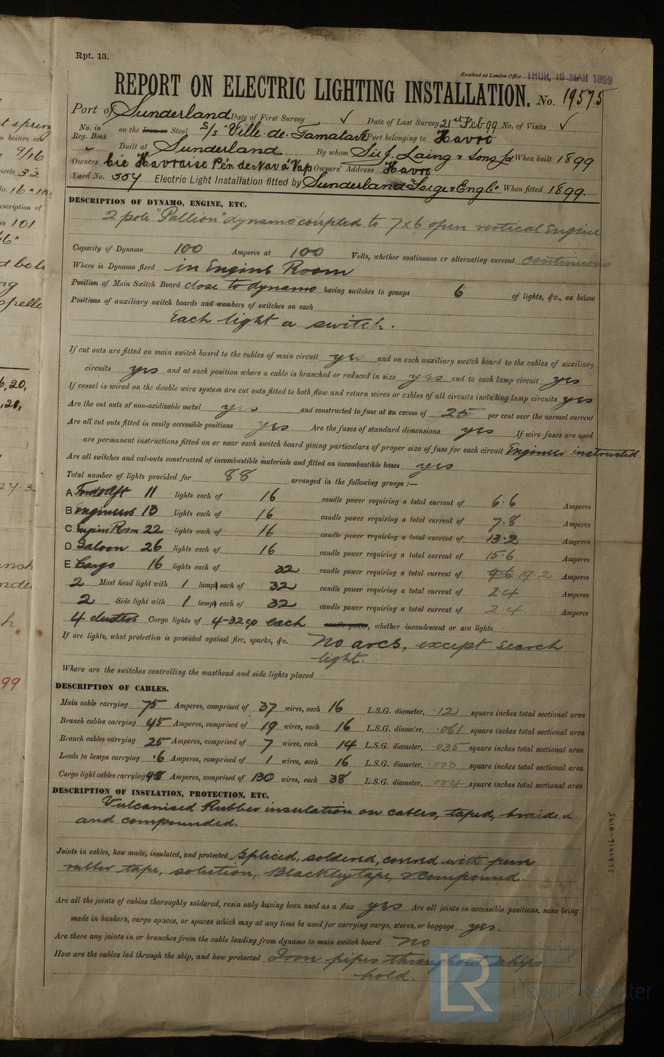 Rpt. 13.
Received at London Office THUR, 16 MAR 1899
REPORT ON ELECTRIC LIGHTING INSTALLATION. No. 19575
Port of Sunderland Date of First Survey ✓ Date of Last Survey 21st Feb 99 No. of Visits ✓
No. in Reg. Book on the Iron or Steel S/s "Ville de Tamatave" Port belonging to Havre
Built at Sunderland By whom Sir J. Laing & Sons Ld When built 1899
Owners Cie Havraise Pén de Nav à Vap Owners' Address Havre
Yard No. 554 Electric Light Installation fitted by Sunderland Forge & Engg When fitted 1899
DESCRIPTION OF DYNAMO, ENGINE, ETC.
2 pole "Pallion" dynamo coupled to 7 x 6 open vertical Engine
Capacity of Dynamo 100 Amperes at 100 Volts, whether continuous or alternating current continuous
Where is Dynamo fixed in Engine Room
Position of Main Switch Board close to dynamo having switches to groups 6 of lights, &c., as below
Positions of auxiliary switch boards and numbers of switches on each
Each light a switch.
If cut outs are fitted on main switch board to the cables of main circuit yes and on each auxiliary switch board to the cables of auxiliary
circuits yes and at each position where a cable is branched or reduced in size yes and to each lamp circuit yes
If vessel is wired on the double wire system are cut outs fitted to both flow and return wires or cables of all circuits including lamp circuits yes
Are the cut outs of non-oxidizable metal yes and constructed to fuse at an excess of 25 per cent over the normal current
Are all cut outs fitted in easily accessible positions yes Are the fuses of standard dimensions yes If wire fuses are used
are permanent instructions fitted on or near each switch board giving particulars of proper size of fuse for each circuit Engineer instructed.
Are all switches and cut-outs constructed of incombustible materials and fitted on incombustible bases yes
Total number of lights provided for 88 arranged in the following groups :—
A Fore & Aft 11 lights each of 16 candle power requiring a total current of 6.6 Amperes
B Engineers 13 lights each of 16 candle power requiring a total current of 7.8 Amperes
C Engine Room 22 lights each of 16 candle power requiring a total current of 13.2 Amperes
D Saloon 26 lights each of 16 candle power requiring a total current of 15.6 Amperes
E Cargo 16 lights each of 32 candle power requiring a total current of 9.6 19.2 Amperes
2 Mast head light with 1 lamp each of 32 candle power requiring a total current of 2.4 Amperes
2 Side light with 1 lamp each of 32 candle power requiring a total current of 2.4 Amperes
4 clusters Cargo lights of 4-32cp each candle power, whether incandescent or arc lights
If arc lights, what protection is provided against fire, sparks, &c. No arcs, except search
light.
Where are the switches controlling the masthead and side lights placed
DESCRIPTION OF CABLES.
Main cable carrying 75 Amperes, comprised of 37 wires, each 16 L.S.G. diameter, .12 square inches total sectional area
Branch cables carrying 45 Amperes, comprised of 19 wires, each 16 L.S.G. diameter, .061 square inches total sectional area
Branch cables carrying 25 Amperes, comprised of 7 wires, each 14 L.S.G. diameter, .035 square inches total sectional area
Leads to lamps carrying .6 Amperes, comprised of 1 wires, each 16 L.S.G. diameter, .003 square inches total sectional area
Cargo light cables carrying 4.8 Amperes, comprised of 130 wires, each 38 L.S.G. diameter, .004 square inches total sectional area
DESCRIPTION OF INSULATION, PROTECTION, ETC.
Vulcanised Rubber insulation on cables, taped, braided
and compounded.
Joints in cables, how made, insulated, and protected Spliced, soldered, covered with pure
rubber tape, solution, Blackley tape, & compound.
Are all the joints of cables thoroughly soldered, resin only having been used as a flux yes Are all joints in accessible positions, none being
made in bunkers, cargo spaces, or spaces which may at any time be used for carrying cargo, stores, or baggage yes.
Are there any joints in or branches from the cable leading from dynamo to main switch board no
How are the cables led through the ship, and how protected Iron pipes throughout ships
hold.
LR
Lloyd's Register
Foundation